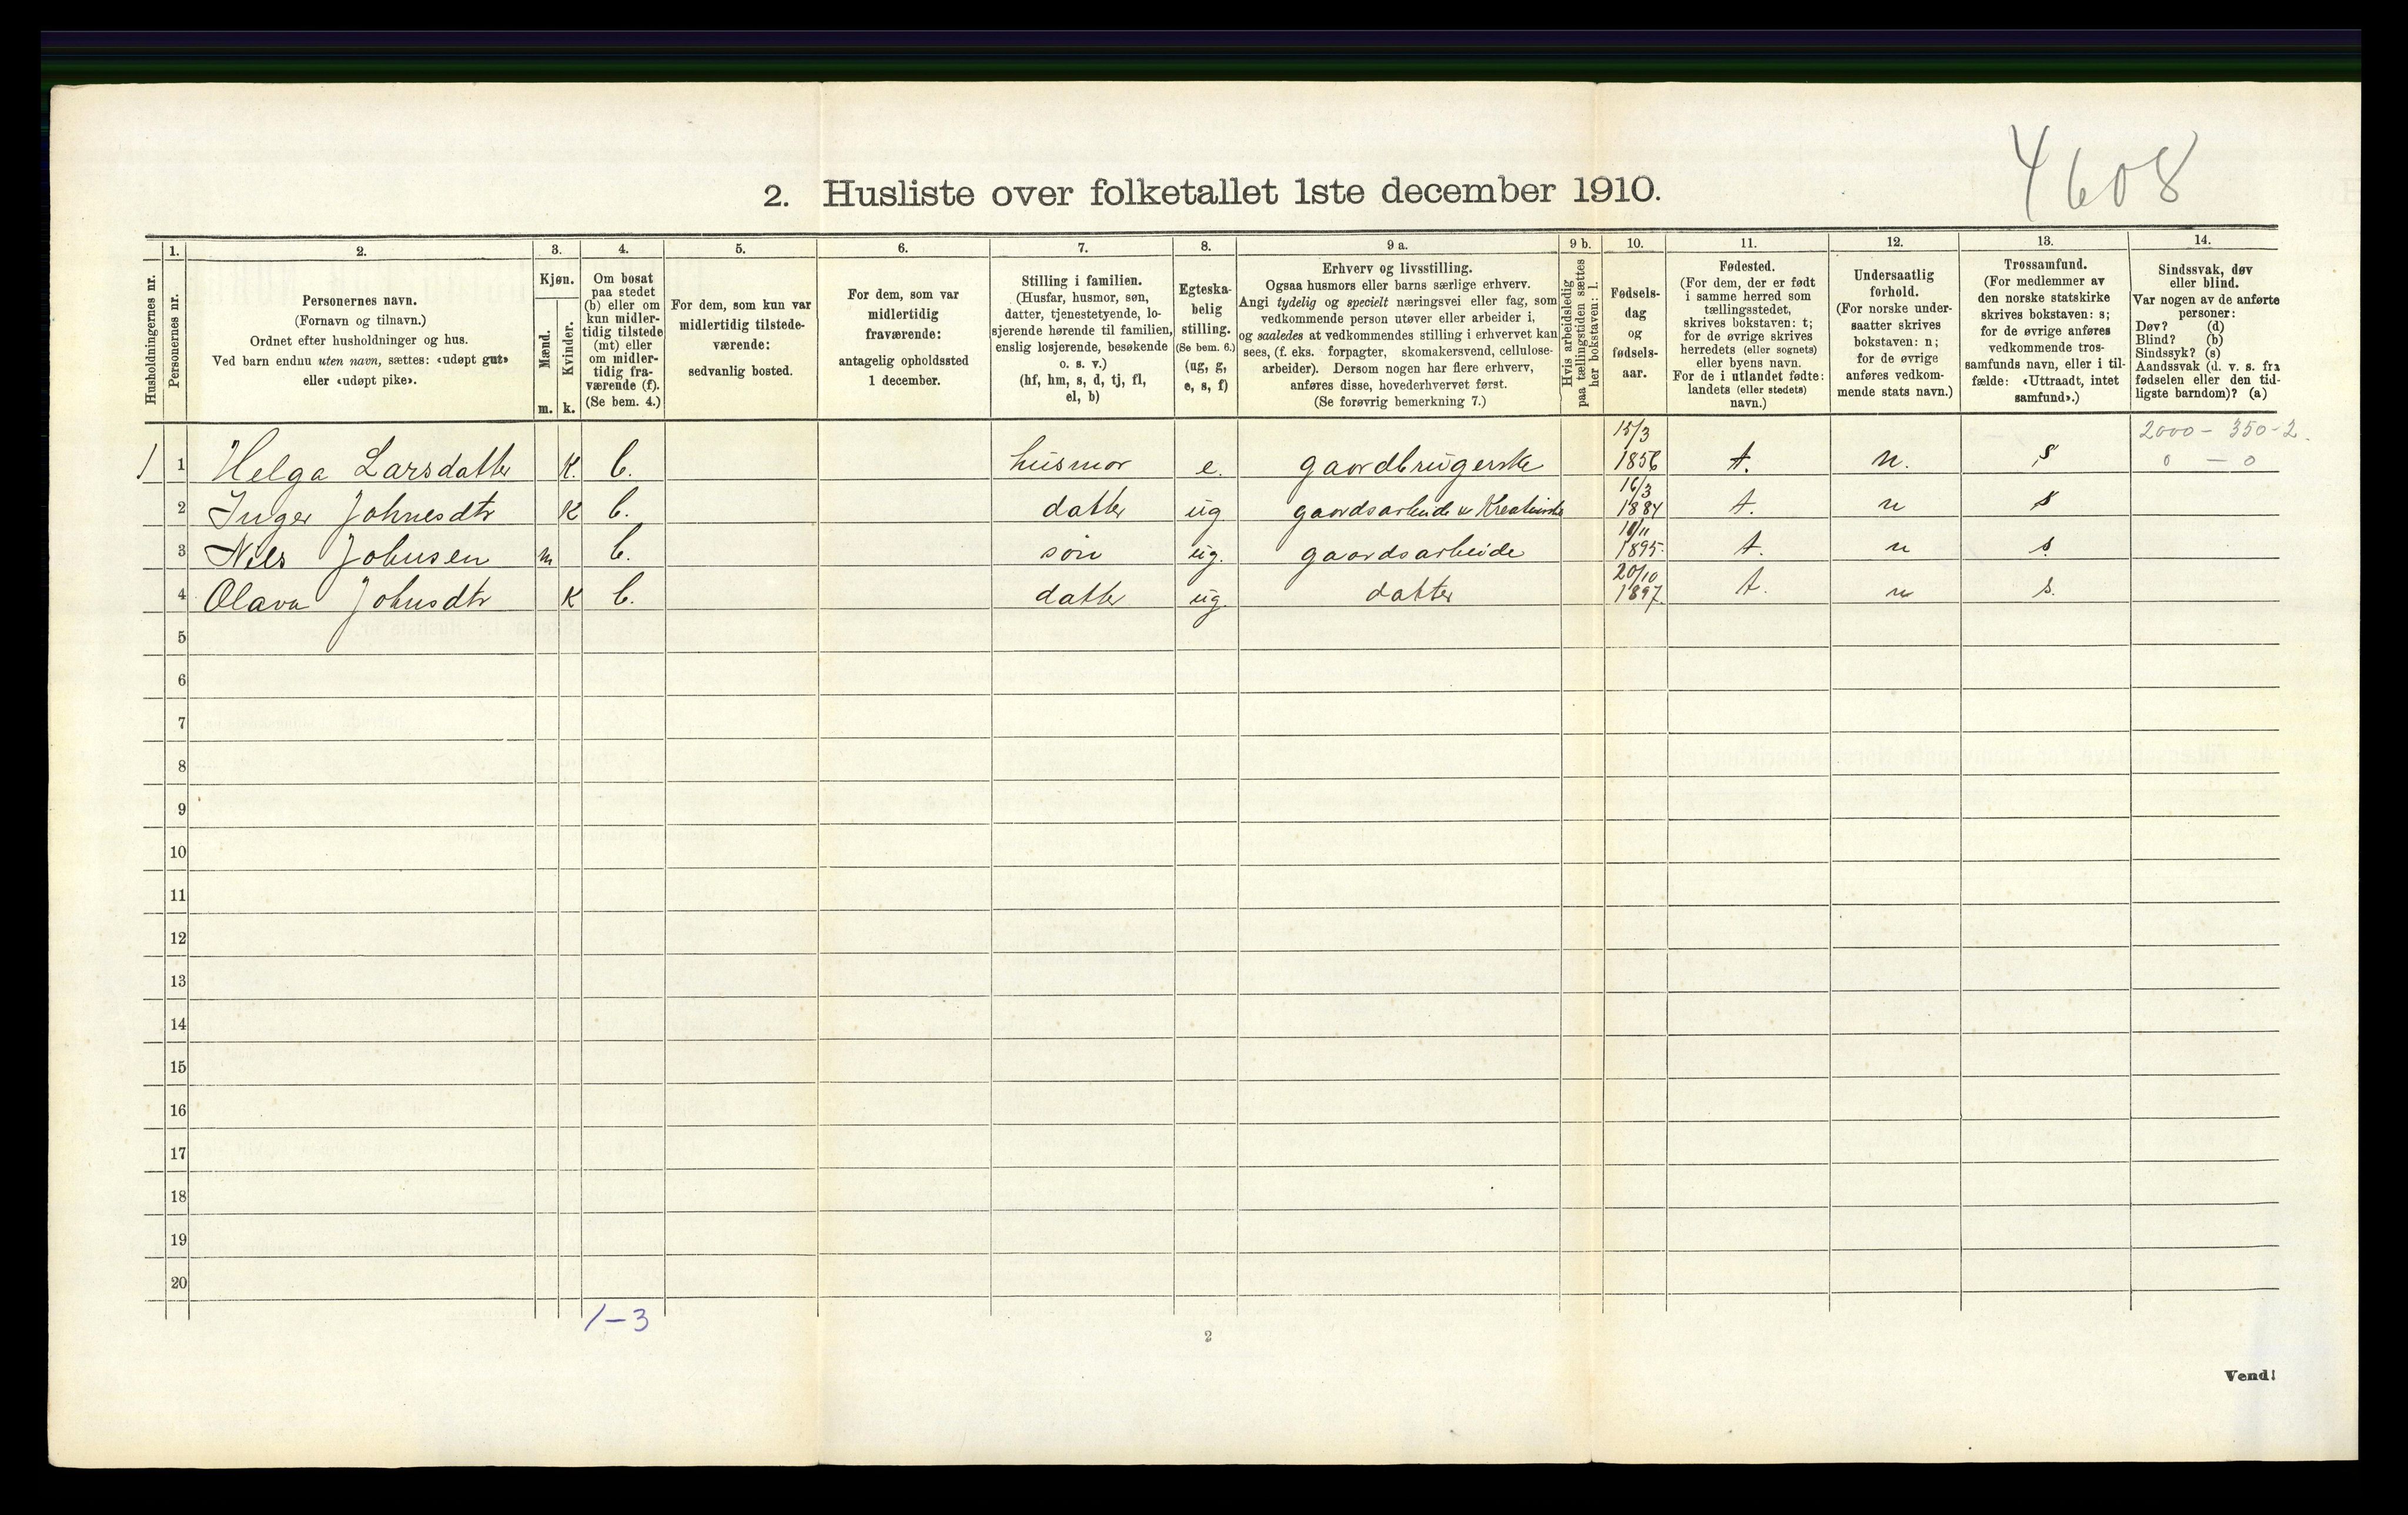 4608
2. Husliste over folketallet 1ste december 1910.
Husholdningernes nr.
1.
Personernes nr.
2.
Personernes navn.
(Fornavn og tilnavn.)
Ordnet efter husholdninger og hus.
Ved barn endnu uten navn, sættes: «udøpt gut»
eller «udøpt pike».
3.
Kjøn.
Mænd.
Kvinder.
m. k.
4.
Om bosat
paa stedet
(b) eller om
kun midler-
tidig tilstede
(mt) eller
om midler-
tidig fra-
værende (f).
(Se bem. 4.)
5.
For dem, som kun var
midlertidig tilstede-
værende:
sedvanlig bosted.
6.
For dem, som var
midlertidig
fraværende:
antagelig opholdssted
1 december.
7.
Stilling i familien.
(Husfar, husmor, søn,
datter, tjenestetyende, lo-
sjerende hørende til familien,
enslig losjerende, besøkende
o. s. v.)
(hf, hm, s, d, tj, fl,
el, b)
8.
Egteska-
belig
stilling.
(Se bem. 6.)
(ug, g,
e, s, f)
9 a.
Erhverv og livsstilling.
Ogsaa husmors eller barns særlige erhverv.
Angi tydelig og specielt næringsvei eller fag, som
vedkommende person utøver eller arbeider i,
og saaledes at vedkommendes stilling i erhvervet kan
sees, (f. eks. forpagter, skomakersvend, cellulose-
arbeider). Dersom nogen har flere erhverv,
anføres disse, hovederhvervet først.
(Se forøvrig bemerkning 7.)
9 b.
Hvis arbeidsledig
paa tællingstiden sættes
her bokstaven: l.
10.
Fødsels-
dag
og
fødsels-
aar.
11.
Fødested.
(For dem, der er født
i samme herred som
tællingsstedet,
skrives bokstaven: t;
for de øvrige skrives
herredets (eller sognets)
eller byens navn.
For de i utlandet fødte:
landets (eller stedets)
navn.)
12.
Undersaatlig
forhold.
(For norske under-
saatter skrives
bokstaven: n;
for de øvrige
anføres vedkom-
mende stats navn.)
13.
Trossamfund.
(For medlemmer av
den norske statskirke
skrives bokstaven: s;
for de øvrige anføres
vedkommende tros-
samfunds navn, eller i til-
fælde: «Uttraadt, intet
samfund».)
14.
Sindssvak, døv
eller blind.
Var nogen av de anførte
personer:
Døv? (d)
Blind? (b)
Sindssyk? (s)
Aandssvak (d. v. s. fra
fødselen eller den tid-
ligste barndom)? (a)
2000 - 350-2.
0 - 0
1 1 Helga Larsdatter K. b. husmor e. gaardbrugerske 15/3 1856 t. n. s
2 Inger Johnesdtr K b. datter ug gaardsarbeide 16/3 1884 t. n s
3 Nils Johnsen m b. søn ug. gaardsarbeide 1895. t. n s.
4 Olava Johnsdtr K b. datter ug. datter 20/10 1897. t. n s.
5
6
7
8
9
10
11
12
13
14
15
16
17
18
19
20
1-3
2
Vend!